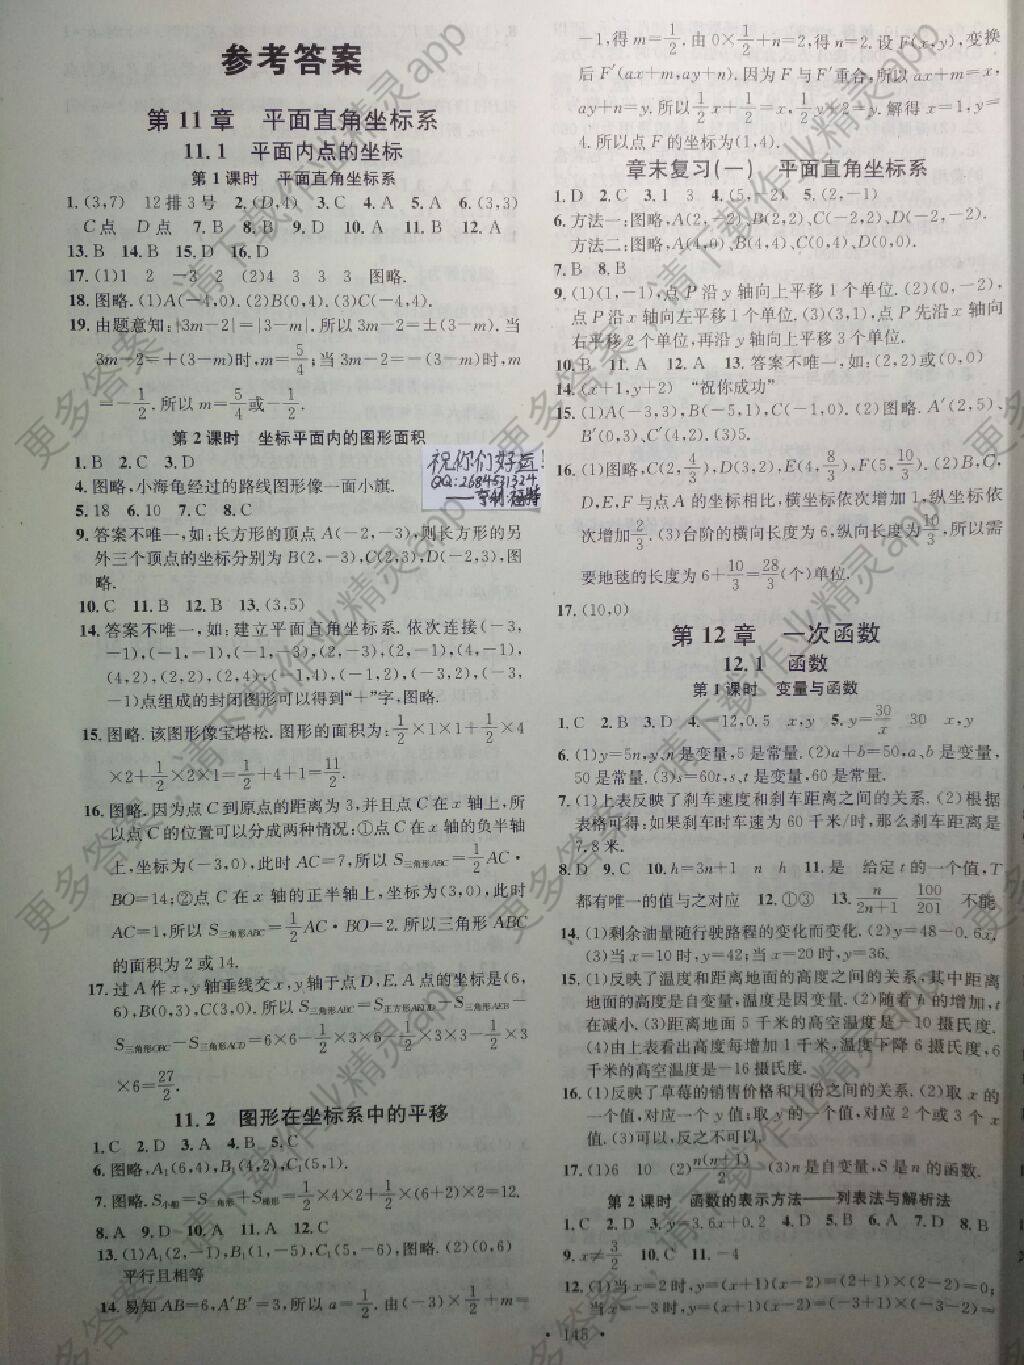 参考答案
第11章 平面直角坐标系
11.1 平面内点的坐标
第1课时 平面直角坐标系
1.(3,7) 12排3号 2.(D,4) 3.C 4.A 5.A 6.(3,3)
C点 D点 7.B 8.B 9.D 10.A 11.B 12.A
13.B 14.B 15.D 16.D
17.(1)1 2 -3 2 (2)4 3 3 3 图略.
18.图略.(1)A(-4,0).(2)B(0,4).(3)C(-4,4).
19.由题意知:|3m-2|=|3-m|.所以3m-2=±(3-m).当
3m-2=+(3-m)时,m=5/4;当3m-2=-(3-m)时,m
=-1/2.所以m=5/4或-1/2.
第2课时 坐标平面内的图形面积
1.B 2.C 3.D
4.图略,小海龟经过的路线图形像一面小旗.
5.18 6.10 7.C 8.C
9.答案不唯一,如:长方形的顶点A(-2,-3),则长方形的另
外三个顶点的坐标分别为B(2,-3),C(2,3),D(-2,3),图
略.
10.C 11.B 12.B 13.(3,5)
14.答案不唯一,如:建立平面直角坐标系.依次连接(-3,
-1),(-1,-1),(-1,-3),(2,-3),(2,-1),(4,-1),
(4,2),(2,2),(2,4),(-1,4),(-1,2),(-3,2),(-3,
-1)点组成的封闭图形可以得到“+”字,图略.
15.图略.该图形像宝塔松.图形的面积为:1/2×1×1+1/2×4
×2+1/2×2×1=1/2+4+1=11/2.
16.图略.因为点C到原点的距离为3,并且点C在x轴上,所
以点C的位置可以分成两种情况:①点C在x轴的负半轴
上,坐标为(-3,0),此时AC=7,所以S三角形ABC=1/2AC·
BO=14;②点C在x轴的正半轴上,坐标为(3,0),此时
AC=1,所以S三角形ABC=1/2AC·BO=2.所以三角形ABC
的面积为2或14.
17.过A作x,y轴垂线交x,y轴于点D,E,A点的坐标是(6,
6),B(0,3),C(3,0).所以S三角形ABC=S正方形AEOD-S三角形AEB-
S三角形OBC-S三角形ACD=6×6-1/2×3×6-1/2×3×3-1/2×3
×6=27/2.
11.2 图形在坐标系中的平移
1.C 2.D 3.A 4.B 5.C
6.图略,A₁(6,4),B₁(4,2),C₁(5,1).
7.图略.S小船=S三角形+S梯形=1/2×4×2+1/2×(6+2)×2=12.
8.A 9.D 10.A 11.A 12.C
13.(1)A₁(2,-1),B₁(1,-5),C₁(5,-6),图略.(2)(0,6)
平行且相等
14.易知AB=6,A′B′=3,所以a=1/2.由(-3)×1/2+m=
祝你们好运!
QQ:2684531324
-1,得m=1/2.由0×1/2+n=2,得n=2.设F(x,y),变换
后F′(ax+m,ay+n).因为F与F′重合,所以ax+m=x,
ay+n=y.所以1/2x+1/2=x,1/2y+2=y.解得x=1,y=
4.所以点F的坐标为(1,4).
章末复习(一) 平面直角坐标系
1.D 2.C 3.1 3 4.(5,-2) 5.(2,-1)
6.方法一:图略,A(2,-2),B(2,2),C(-2,2),D(-2,-2).
方法二:图略,A(4,0),B(4,4),C(0,4),D(0,0).
7.B 8.B
9.(1)(1,-1),点P沿y轴向上平移1个单位.(2)(0,-2),
点P沿x轴向左平移1个单位.(3)(3,1),点P先沿x轴向
右平移2个单位,再沿y轴向上平移3个单位.
10.B 11.A 12.A 13.答案不唯一,如:(2,2)或(0,0)
14.(x+1,y+2) “祝你成功”
15.(1)A(-3,3),B(-5,1),C(-1,0).(2)图略.A′(2,5)、
B′(0,3)、C′(4,2).(3)5.
16.(1)图略,C(2,4/3),D(3,2),E(4,8/3),F(5,10/3).(2)B,C,
D,E,F与点A的坐标相比,横坐标依次增加1,纵坐标依
次增加2/3.(3)台阶的横向长度为6,纵向长度为10/3,所以需
要地毯的长度为6+10/3=28/3(个)单位.
17.(10,0)
第12章 一次函数
12.1 函数
第1课时 变量与函数
1.C 2.B 3.D 4.-12,0.5 x,y 5.y=30/x 30 x,y
6.(1)y=5n,y、n是变量,5是常量.(2)a+b=50,a、b是变量,
50是常量.(3)s=60t,s、t是变量,60是常量.
7.(1)上表反映了刹车速度和刹车距离之间的关系.(2)根据
表格可得:如果刹车时车速为60千米/时,那么刹车距离是
7.8米.
8.D 9.C 10.h=3n+1 n h 11.是 给定t的一个值,T
都有唯一的值与之对应 12.①③ 13.n/(2n+1) 100/201 不能
14.(1)剩余油量随行驶路程的变化而变化.(2)y=48-0.6x.
(3)当x=10时,y=42;当x=20时,y=36.
15.(1)反映了温度和距离地面的高度之间的关系,其中距离
地面的高度是自变量,温度是因变量.(2)随着h的增加,t
在减小.(3)距离地面5千米的高空温度是-10摄氏度.
(4)由上表看出高度每增加1千米,温度下降6摄氏度,6
千米的高空温度是-16摄氏度.
16.(1)反映了草莓的销售价格和月份之间的关系.(2)取x的
一个值,对应一个y值;取y的一个值,对应2个或3个x
值.(3)可以,反之不可以.
17.(1)6 10 (2)n(n+1)/2 (3)n是自变量,S是n的函数.
第2课时 函数的表示方法——列表法与解析法
1.C 2.D 3.y=3.6x+0.2 4.D 5.B 6.A 7.D 8.B
9.x≠3/2 10.C 11.-4
12.(1)当x=2时,y=(x+1)(x-2)=(2+1)×(2-2)=0;
当x=-3时,y=(x+1)(x-2)=(-3+1)×(-3-2)=
·145·
更多答案,请下载作业精灵app
更多答案,请下载作业精灵app
更多答案,请下载作业精灵app